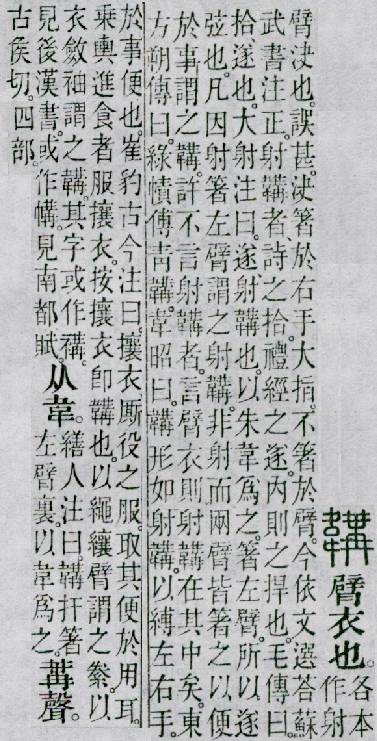 韝臂衣也。各本
作射
臂決也。誤甚。決箸於右手大指。不箸於臂。今依文選荅蘇
武書注正。射韝者。詩之拾。禮經之遂。內則之捍也。毛傳曰。
拾遂也。大射注曰。遂射韝也。以朱韋爲之。箸左臂。所以遂
弦也。凡因射箸左臂謂之射韝。非射而兩臂皆箸之以便
於事謂之韝。許不言射韝者。言臂衣則射韝在其中矣。東
方朔傳曰。綠幘傅青韝。韋昭曰。韝形如射韝。以縛左右手。
於事便也。崔豹古今注曰。攘衣。厮役之服。取其便於用耳。
乘輿進食者服攘衣。按攘衣卽韝也。以繩纕臂謂之絭。以
衣斂袖謂之韝。其字或作褠。
見後漢書。或作㡚。見南都賦。
从韋。
繕人注曰。韝扞箸
左臂裏。以韋爲之。
冓聲。
古矦切。四部。